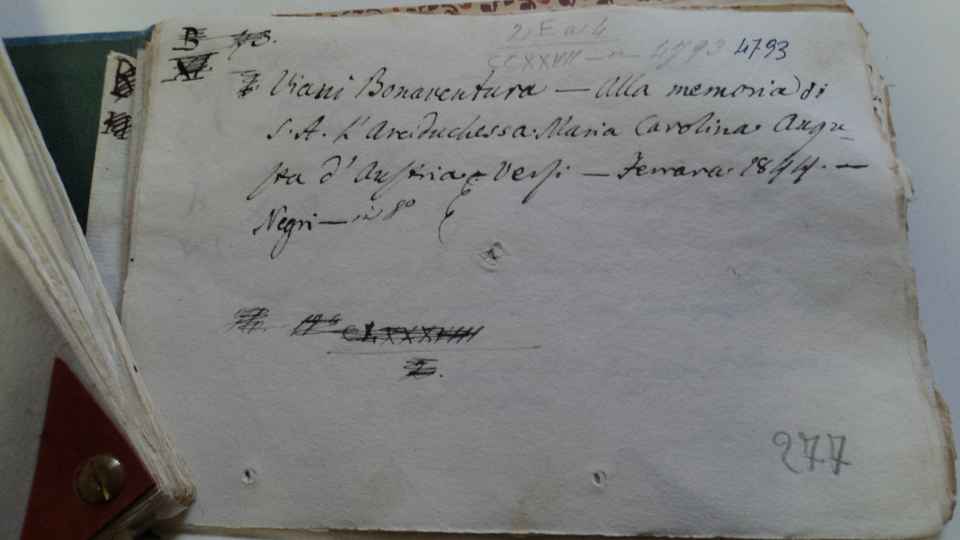 B
XI.
4793 4793
Viani Bonaventura — Alla memoria di
S. A. L'Arciduchessa Maria Carolina Augu-
sta d'Austria Versi — Ferrara 1844. —
Negri — in 8º
CLXXXVIII
2.
277